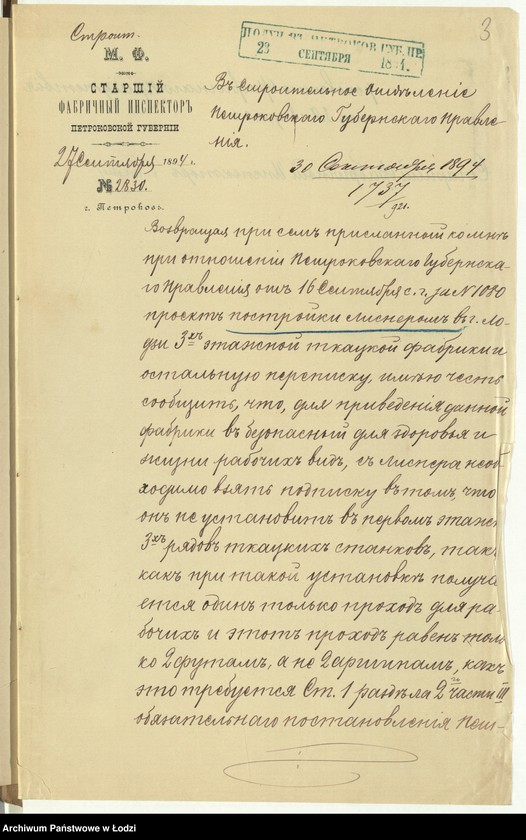 Строит.
М. Ф.
СТАРШІЙ
ФАБРИЧНЫЙ ИНСПЕКТОРЪ
ПЕТРОКОВСКОЙ ГУБЕРНІИ
27 Сентября 1894 г.
№ 2830.
г. Петроковъ.
3
23 СЕНТЯБРЯ
Въ Строительное отдѣленіе
Петроковскаго Губернскаго Правле-
нія.
30 Сентября 1894
1737
Возвращая при семъ присланной ко мнѣ
при отношеніи Петроковскаго Губернска-
го Правленія отъ 16 Сентября с. г. за № 1080
проектъ постройки Лиснеромъ въ г. Ло-
дзи 3хъ этажной ткацкой фабрики и
остальную переписку, имѣю честь
сообщить, что, для приведенія данной
фабрики въ безопасный для здоровья и
жизни рабочихъ видъ, съ Лиснера необ-
ходимо взять подписку въ томъ, что
онъ не установитъ въ первомъ этаже
3хъ рядовъ ткацкихъ станковъ, такъ
какъ при такой установкѣ получа
ется одинъ только проходъ для ра-
бочихъ и этотъ проходъ равенъ толь
ко 2 футамъ, а не 2 аршинамъ, какъ
это требуется Ст. 1 раздѣла 2 части III
обязательнаго постановленія Пет-
Archiwum Państwowe w Łodzi